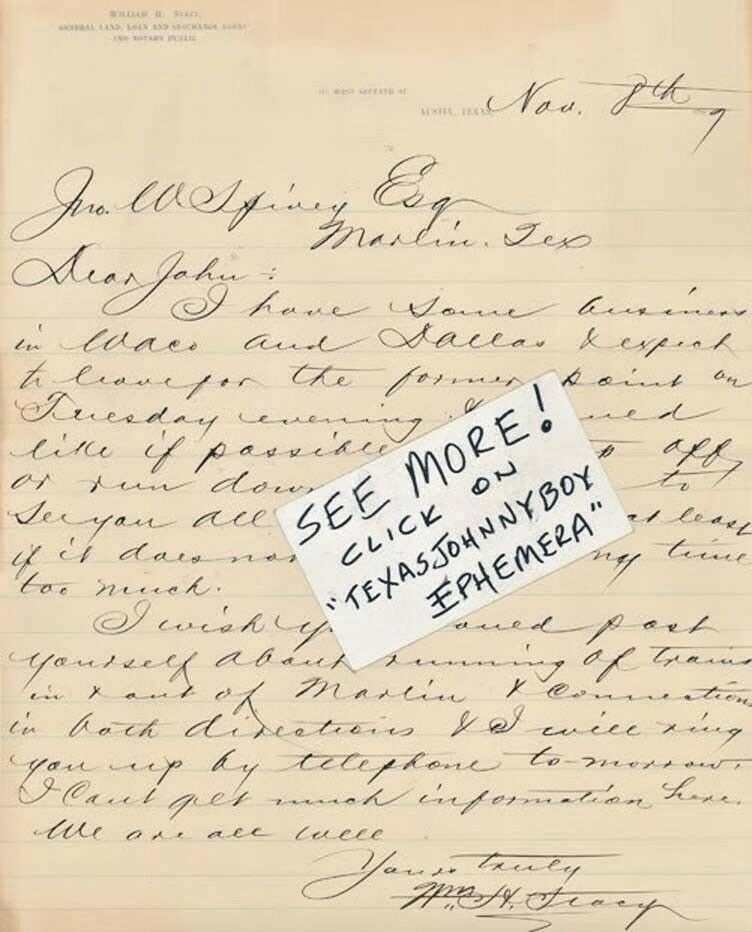 WILLIAM H. STACY,
GENERAL LAND, LOAN AND
AND NOTARY PUBLIC
WEST SEVENTH ST
AUSTIN, TEXAS, Nov. 8th 9
Jno. W Spivey Esq
Marlin. Tex
Dear John :
I have some business
in Waco and Dallas & expect
to leave for the former point on
Tuesday evening & ed
like if possible off
or run down to
see you all at least
if it does not time
too much.
I wish y ould post
yourself about running of trains
in & out of Marlin & connections
in both directions & I will ring
you up by telephone to-morrow.
I Cant get much information here.
We are all well
Yours truly
Wm. H. Stacy
SEE MORE!
CLICK ON
"TEXASJOHNNYBOY
EPHEMERA"